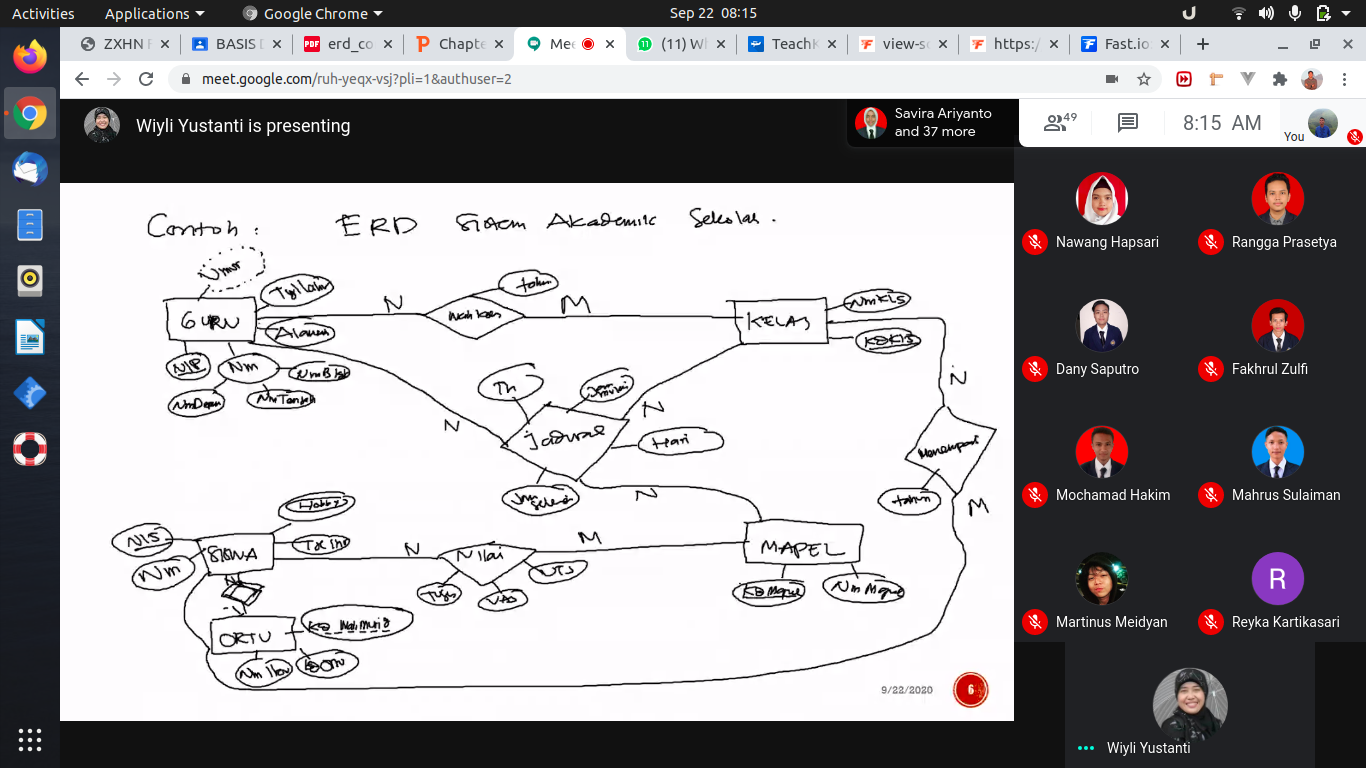 Activities Applications Google Chrome Sep 22 08:15
ZXHN BASIS erd_co Chapte Mee (11) W TeachK view-s https:/ Fast.io:
meet.google.com/ruh-yeqx-vsj?pli=1&authuser=2
Wiyli Yustanti is presenting
Savira Ariyanto
and 37 more
49
8:15 AM
You
Contoh : ERD Sistem Akademik Sekolah.
Umur
Tgl Lahir
GURU
Alamat
NIP
Nm
N
M
tahun
KELAS
NmKls
KDKls
Th
Jadwal
Hari
N
N
N
N
Menempati
tahun
M
Hobby
NIS
Nm
SISWA
N
Nilai
M
UTS
UAS
Tugas
MAPEL
KD Mapel
Nm Mapel
N
ORTU
Nm Ibu
9/22/2020
6
Nawang Hapsari
Rangga Prasetya
Dany Saputro
Fakhrul Zulfi
Mochamad Hakim
Mahrus Sulaiman
Martinus Meidyan
R
Reyka Kartikasari
Wiyli Yustanti